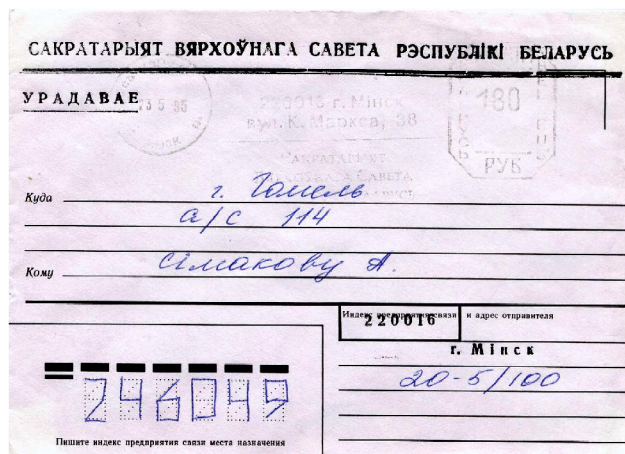 САКРАТАРЫЯТ ВЯРХОЎНАГА САВЕТА РЭСПУБЛІКІ БЕЛАРУСЬ
УРАДАВАЕ
23 5 95
220016 г. Мінск
вул. К. Маркса, 38
САКРАТАРЫЯТ
САВЕТА
180
РУБ
Куда г. Гомель
а/с 114
Кому Сімакову А.
Индекс предприятия связи и адрес отправителя
220016
г. Мінск
20-5/100
246049
Пишите индекс предприятия связи места назначения